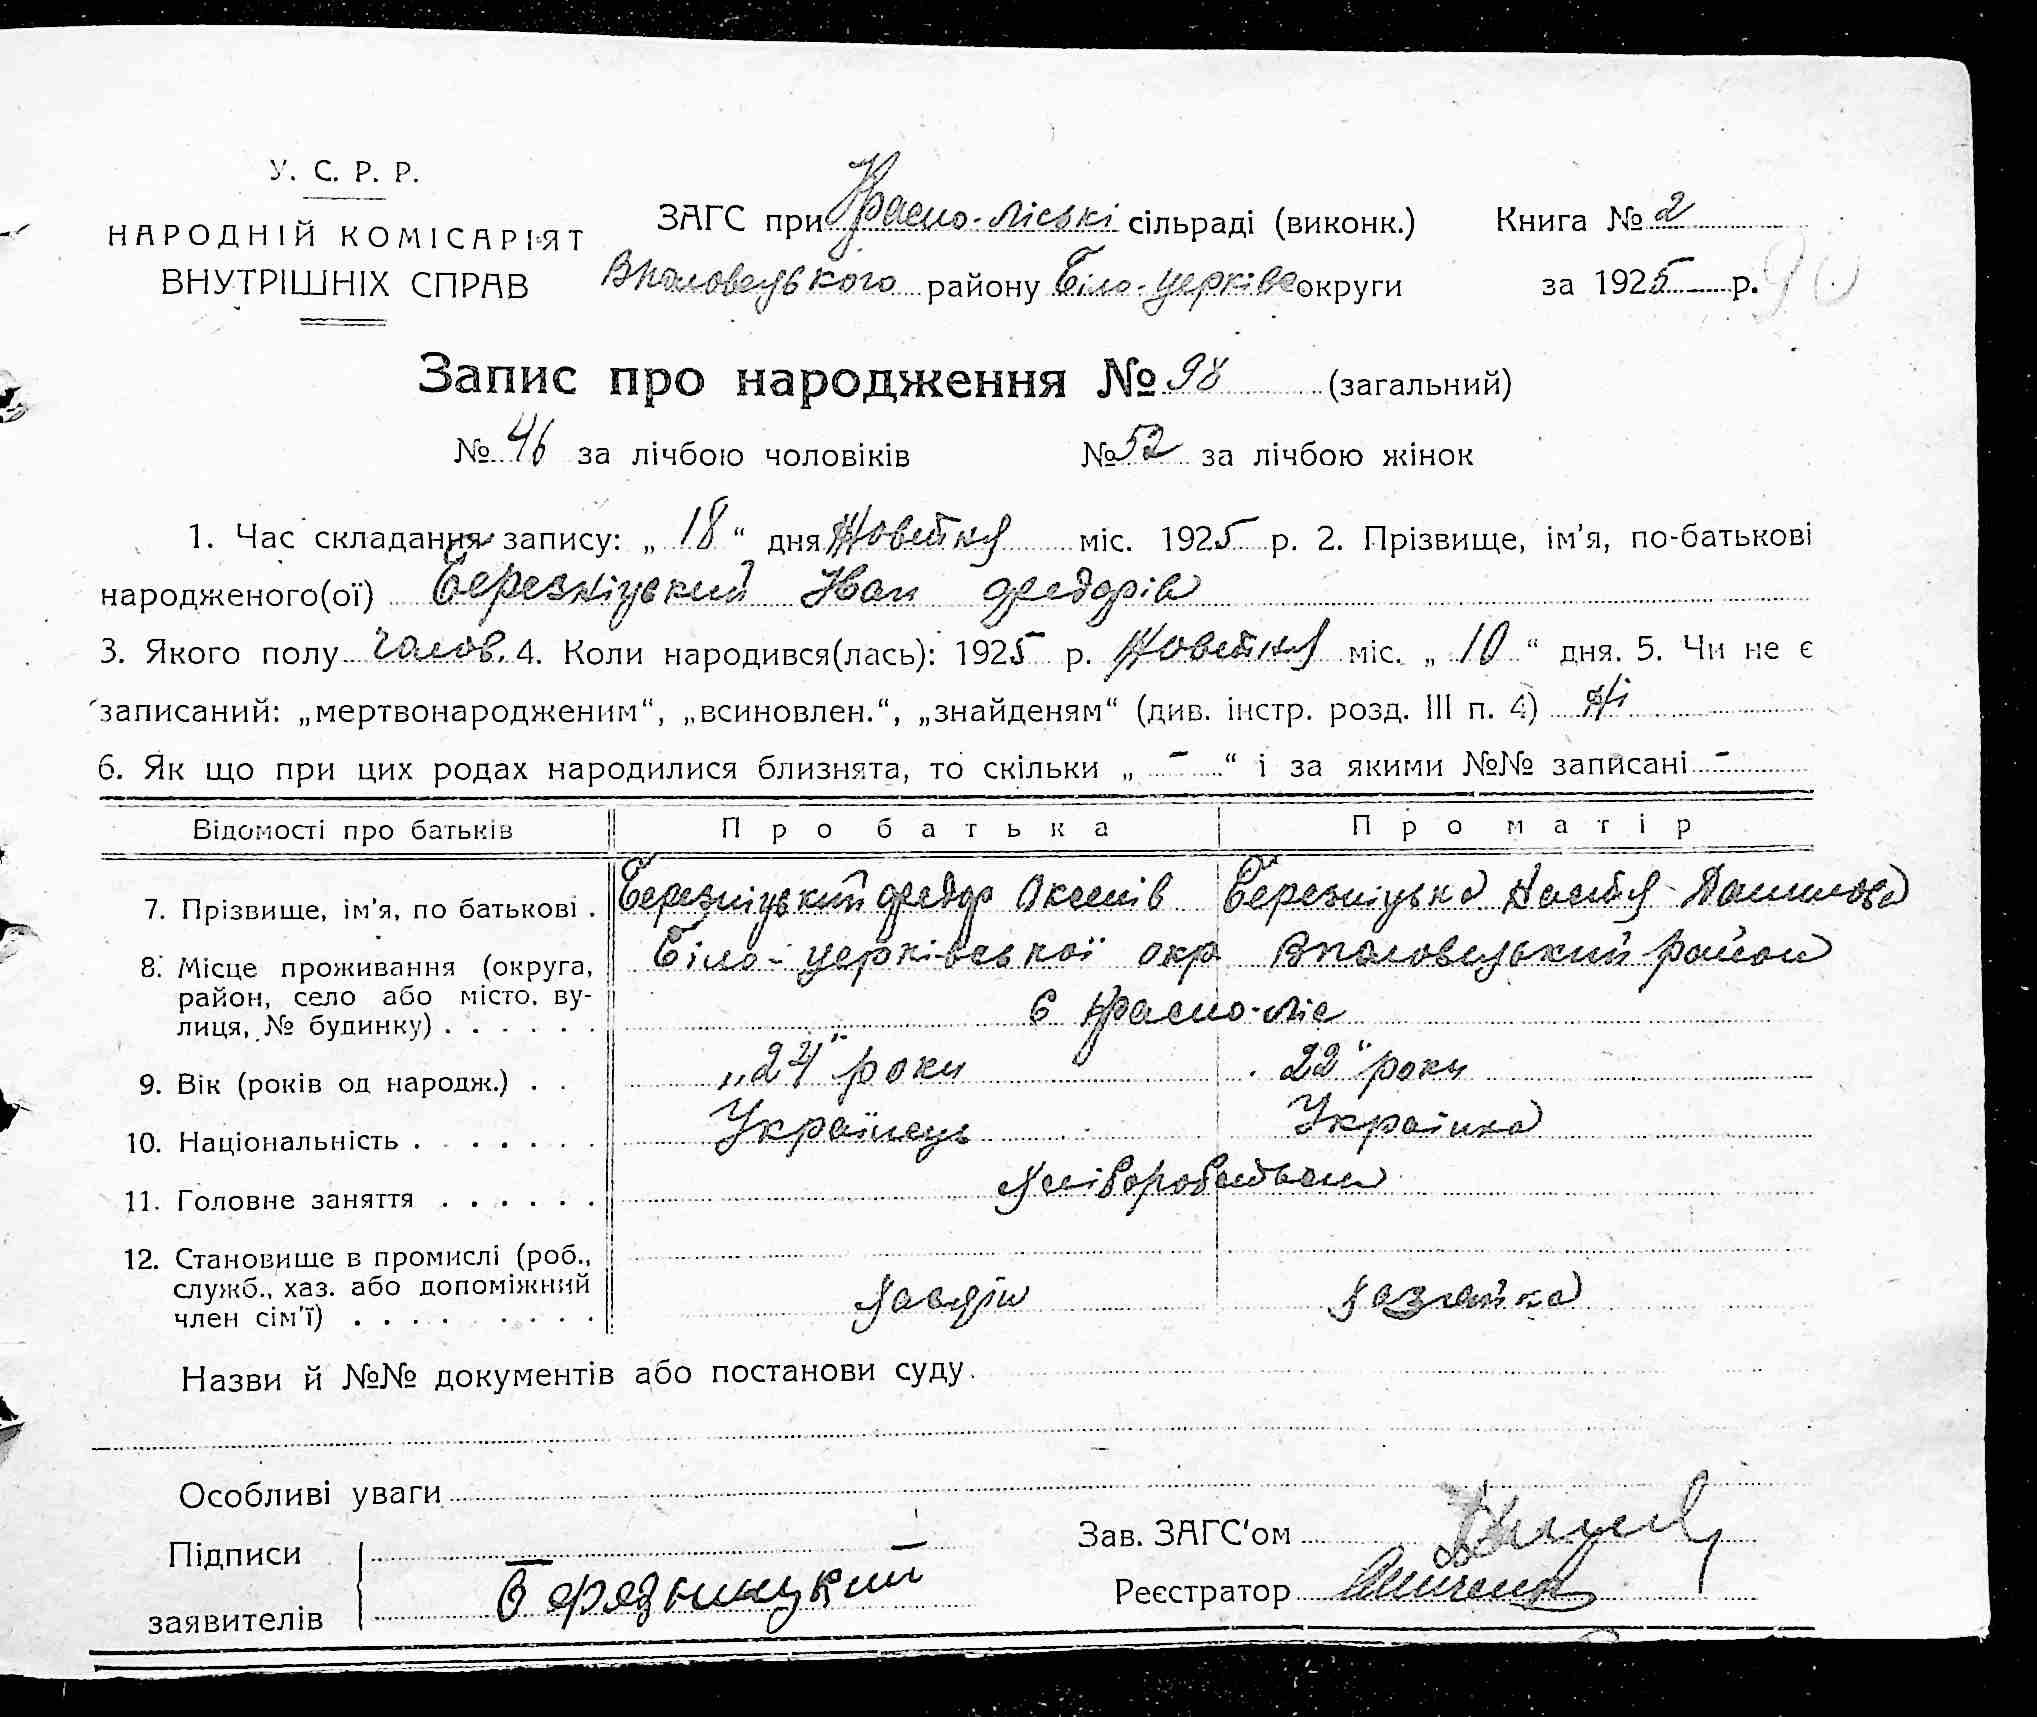 У. С. Р. Р.
НАРОДНІЙ КОМІСАРІЯТ
ВНУТРІШНІХ СПРАВ
ЗАГС при Красно-лісські сільраді (виконк.) Книга № 2
Вполовецького району Біло-церківс округи за 1925 р. 90
Запис про народження № 98 (загальний)
№ 46 за лічбою чоловіків № 52 за лічбою жінок
1. Час складання запису: „ 18 “ дня Жовтня міс. 1925 р. 2. Прізвище, ім'я, по-батькові
народженого(ої) Березніцький Іван Федорів
3. Якого полу чолов. 4. Коли народився(лась): 1925 р. Жовтня міс. „ 10 “ дня. 5. Чи не є
записаний: „мертвонародженим“, „всиновлен.“, „знайденям“ (див. інстр. розд. III п. 4) Ні
6. Як що при цих родах народилися близнята, то скільки „ – “ і за якими №№ записані –
Відомості про батьків Про батька Про матір
7. Прізвище, ім'я, по батькові . Березніцький Федор Оксенів Березніцька Настя Данилова
8. Місце проживання (округа, Біло-церківської окр Вполовецький район
район, село або місто, ву- с Красно-ліс
лиця, № будинку) . . . . . .
9. Вік (років од народж.) . . „24“ роки 22“ роки
10. Національність . . . . . . . Українець Украінка
11. Головне заняття . . . . . . Хліборобством
12. Становище в промислі (роб.,
служб., хаз. або допоміжний Хазяїн Хазяйка
член сім'ї) . . . . . . . . .
Назви й №№ документів або постанови суду.
Особливі уваги
Підписи
заявителів Березницкий
Зав. ЗАГС'ом
Реєстратор